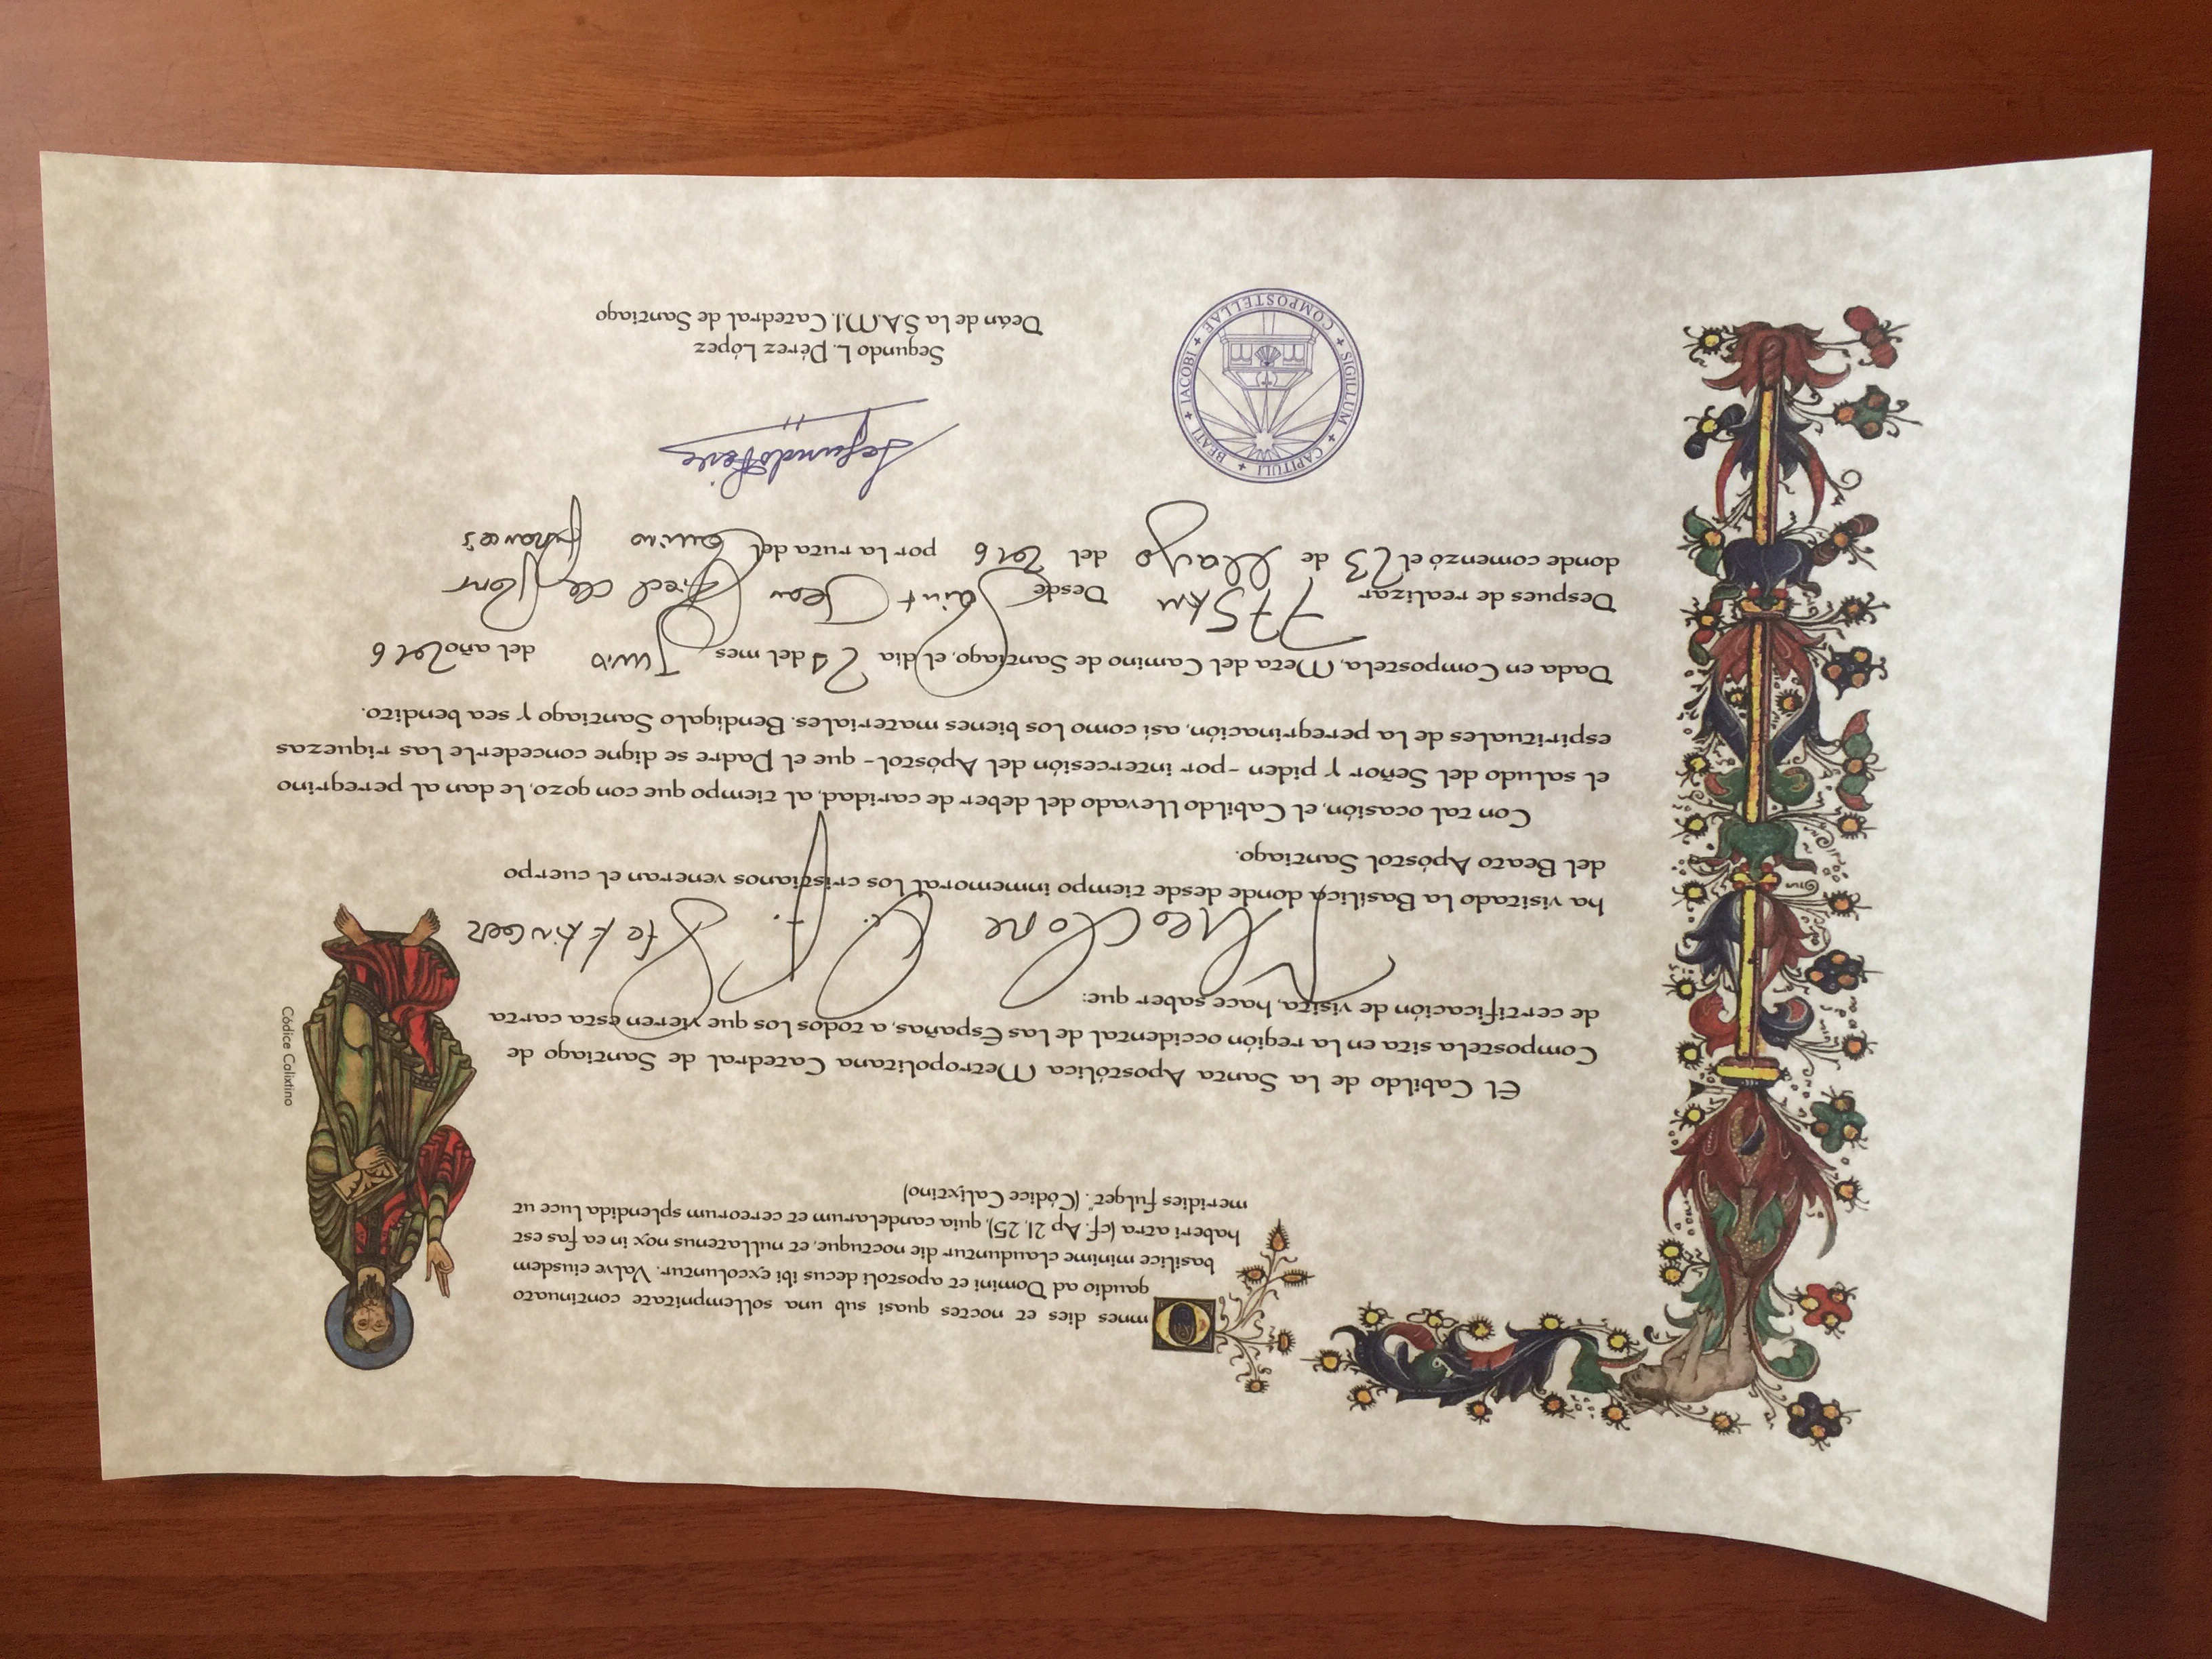 Omnes dies et noctes quasi sub una sollempnitate continuato
gaudio ad Domini et apostoli decus ibi excoluntur. Valve eiusdem
basilice minime clauduntur die noctuque, et nullatenus nox in ea fas est
haberi atra (cf. Ap 21, 25), quia candelarum et cereorum splendida luce ut
meridies fulget". (Códice Calixtino)
Códice Calixtino
El Cabildo de la Santa Apostólica Metropolitana Catedral de Santiago de
Compostela sita en la región occidental de las Españas, a todos los que vieren esta carta
de certificación de visita, hace saber que:
ha visitado la Basílica donde desde tiempo inmemoral los cristianos veneran el cuerpo
del Beato Apóstol Santiago.
Con tal ocasión, el Cabildo llevado del deber de caridad, al tiempo que con gozo, le dan al peregrino
el saludo del Señor y piden -por intercesión del Apóstol- que el Padre se digne concederle las riquezas
espirituales de la peregrinación, así como los bienes materiales. Bendígalo Santiago y sea bendito.
Dada en Compostela, Meta del Camino de Santiago, el dia 21 del mes Junio del año 2016
Despues de realizar 775 km Desde Saint Jean Pied de Port
donde comenzó el 23 de Mayo del 2016 por la ruta del Camino frances
SIGILLUM + CAPITULI + BEATI + IACOBI + COMPOSTELLAE +
Segundo L. Pérez López
Deán de la S.A.M.I. Catedral de Santiago